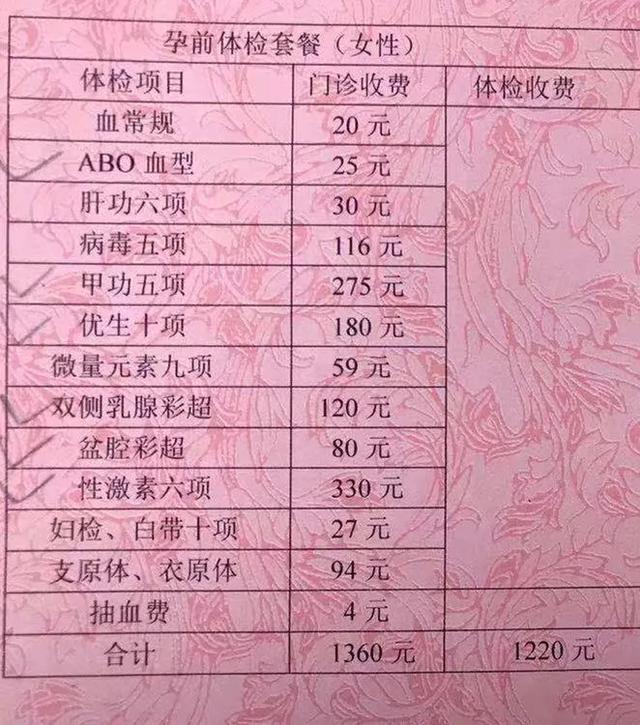 孕前体检套餐（女性）
体检项目 门诊收费 体检收费
血常规 20 元
ABO 血型 25 元
肝功六项 30 元
病毒五项 116 元
甲功五项 275 元
优生十项 180 元
微量元素九项 59 元
双侧乳腺彩超 120 元
盆腔彩超 80 元
性激素六项 330 元
妇检、白带十项 27 元
支原体、衣原体 94 元
抽血费 4 元
合计 1360 元 1220 元